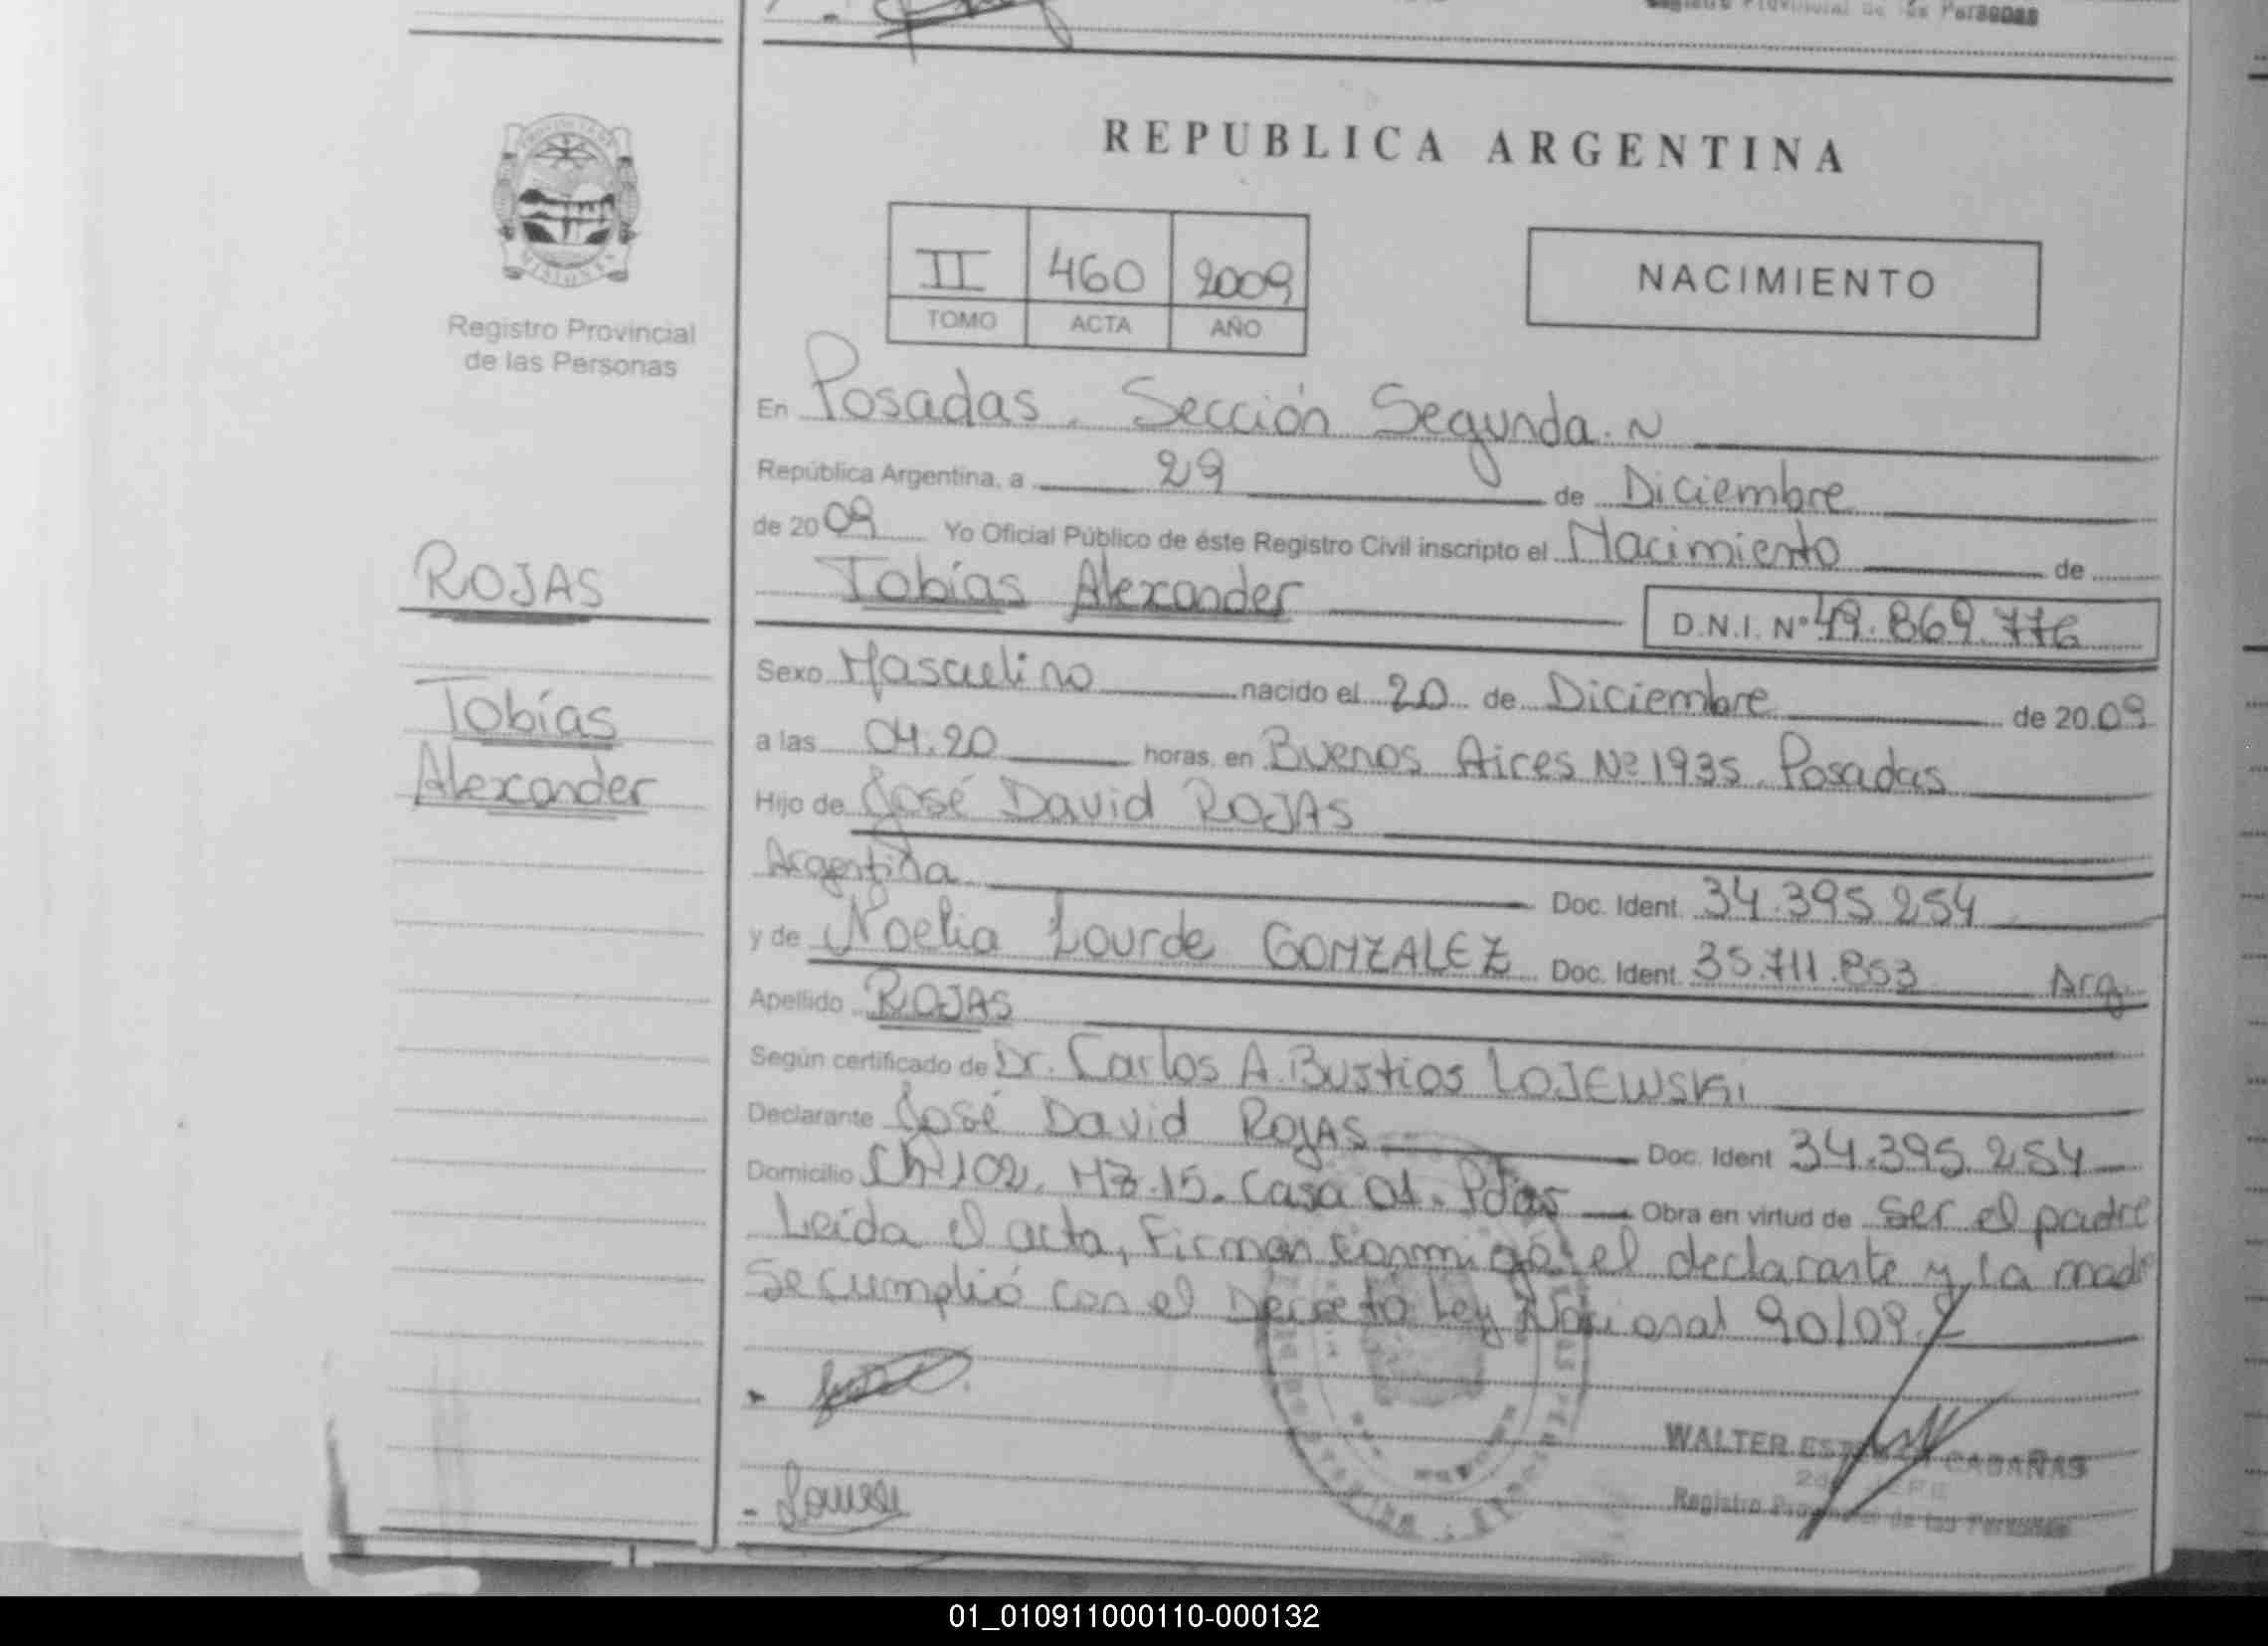 Registro Provincial de las Personas
REPUBLICA ARGENTINA
PROVINCIA DE
MISIONES
Registro Provincial
de las Personas
II 460 2009
TOMO ACTA AÑO
NACIMIENTO
ROJAS
Tobías
Alexander
En Posadas. Sección Segunda. N
República Argentina, a 29 de Diciembre
de 20 09 Yo Oficial Público de éste Registro Civil inscripto el Nacimiento de
Tobías Alexander D.N.I. Nº 49.869.776
Sexo Masculino nacido el 20 de Diciembre de 20.09
a las 04.20 horas. en Buenos Aires Nº 1935. Posadas
Hijo de José David ROJAS
Argentina Doc. Ident. 34.395.254
y de Noelia Lourde GONZALEZ Doc. Ident. 35.711.853 Arg.
Apellido ROJAS
Según certificado de Dr. Carlos A. Bustios LOJEWSKi
Declarante José David ROJAS Doc. Ident 34.395.254
Domicilio Ch 102. Mz.15. Casa 01. Pdas Obra en virtud de ser el padre
Leída el acta, Firman conmigo el declarante y la madre
Se cumplió con el Decreto Ley Nacional 90/09.
Lourde
WALTER CABAÑAS
Registro Provincial de las Personas
01_010911000110-000132